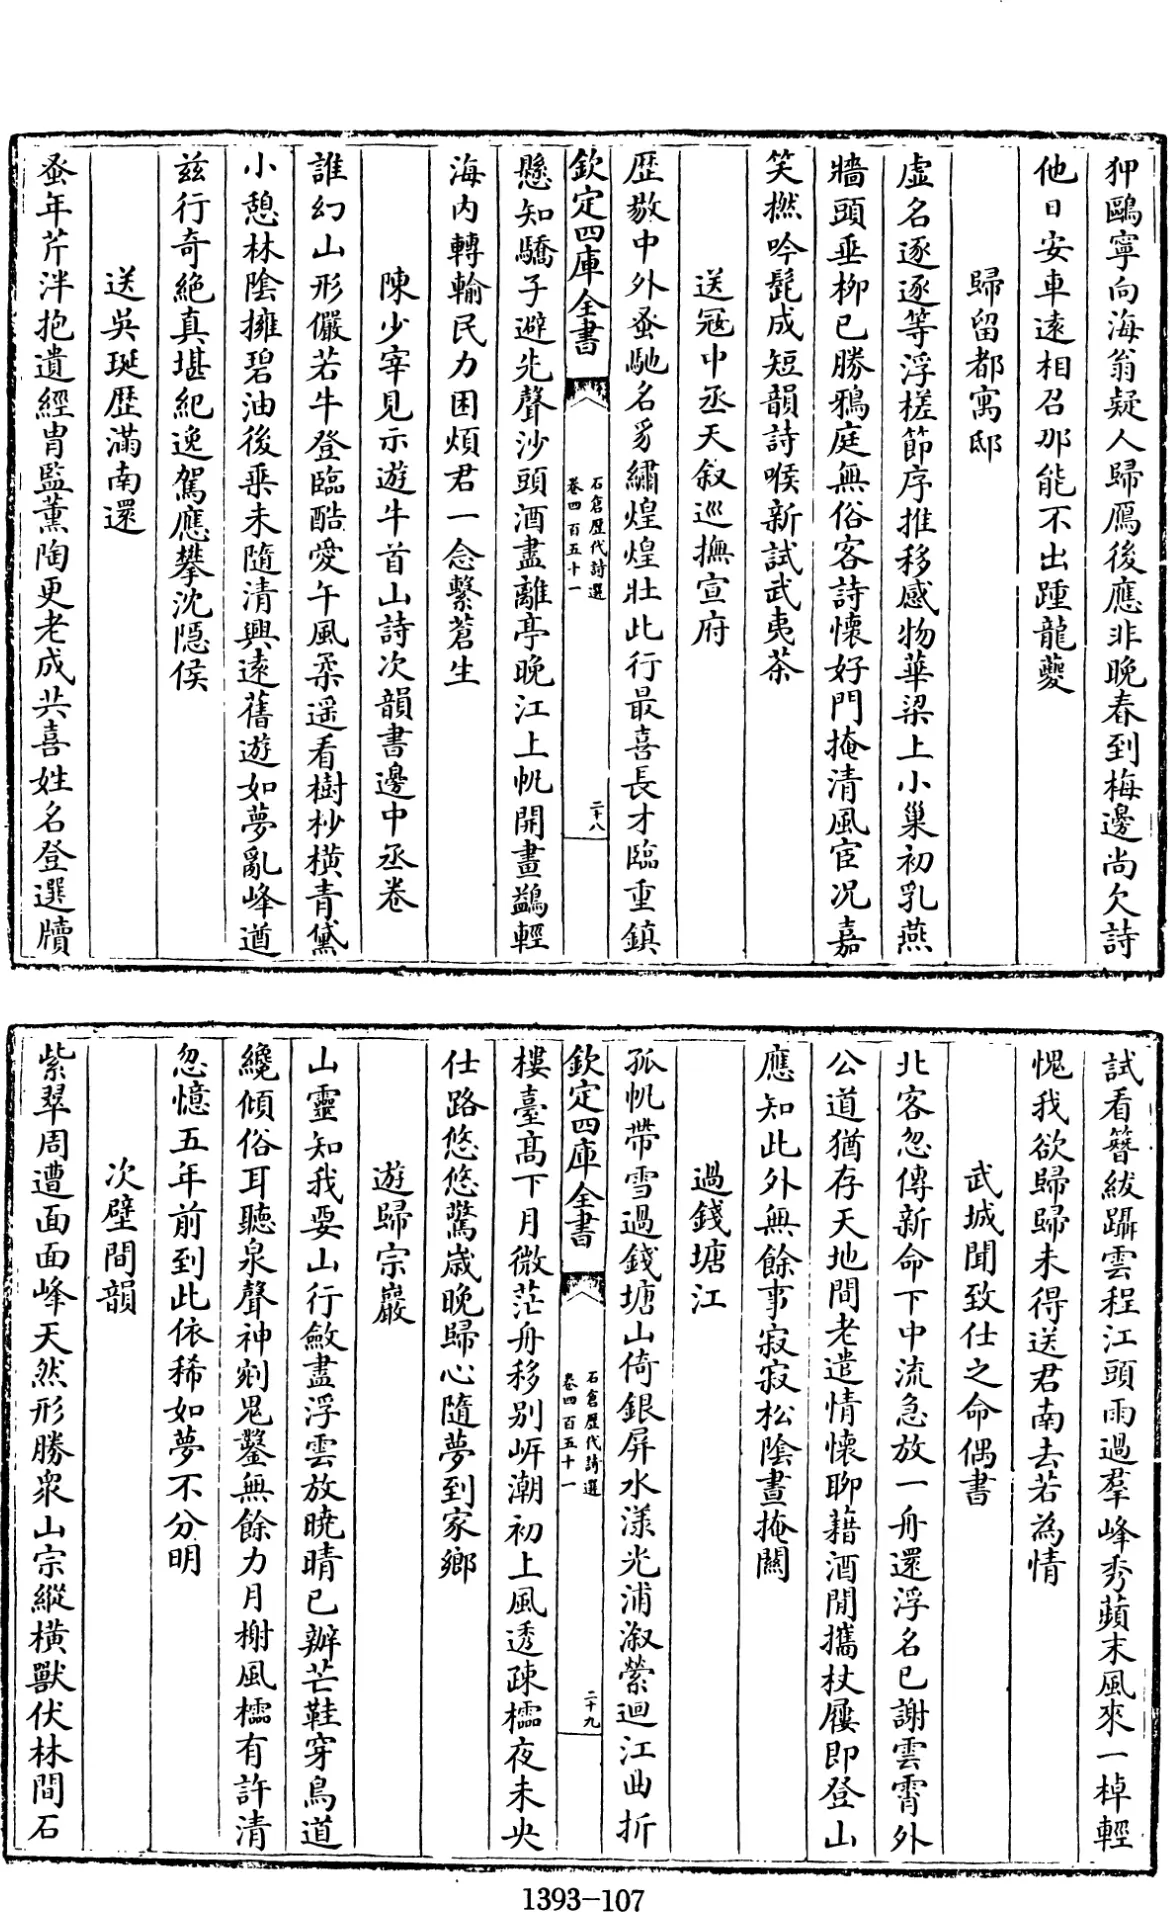 狎鷗寧向海翁疑人歸鴈後應非晚春到梅邊尚欠詩
他日安車遠相召那能不出踵龍夔
歸留都寓邸
虛名逐逐等浮槎節序推移感物華梁上小巢初乳燕
牆頭垂栁已勝鴉庭無俗客詩懷好門掩清風宦况嘉
笑撚吟髭成短韻詩喉新試武夷茶
送冦中丞天叙巡撫宣府
歴敭中外蚤馳名豸繡煌煌壯此行最喜長才臨重鎮
欽定四庫全書
石倉歷代詩選
卷四百五十一
二十八
懸知驕子避先聲沙頭酒盡離亭晚江上帆開畫鷁輕
海内轉輸民力困煩君一念繫蒼生
陳少宰見示遊牛首山詩次韻書邊中丞卷
誰幻山形儼若牛登臨酷愛午風柔遥看樹杪橫青黛
小憩林陰擁碧油後乗未隨清興遠舊遊如夢亂峰遒
兹行奇絶真堪紀逸駕應攀沈隠侯
送吳珽歴滿南還
蚤年芹泮抱遺經胄監薰陶更老成共喜姓名登選牘
試看簪紱躡雲程江頭雨過羣峰秀蘋末風來一棹輕
愧我欲歸歸未得送君南去若為情
武城聞致仕之命偶書
北客忽傳新命下中流急放一舟還浮名已謝雲霄外
公道猶存天地間老遣情懷聊藉酒閒攜杖屨即登山
應知此外無餘事寂寂松陰晝掩關
過錢塘江
孤帆帶雪過錢塘山倚銀屏水漾光浦溆縈迴江曲折
欽定四庫全書
石倉歷代詩選
卷四百五十一
二十九
樓臺髙下月微茫舟移别㟁潮初上風透疎櫺夜未央
仕路悠悠驚歳晚歸心隨夢到家鄉
遊歸宗巖
山靈知我要山行斂盡浮雲放曉晴已辦芒鞋穿鳥道
纔傾俗耳聽泉聲神剜鬼鑿無餘力月榭風櫺有許清
忽憶五年前到此依稀如夢不分明
次壁間韻
紫翠周遭面面峰天然形勝衆山宗縱橫獸伏林間石
1393-107